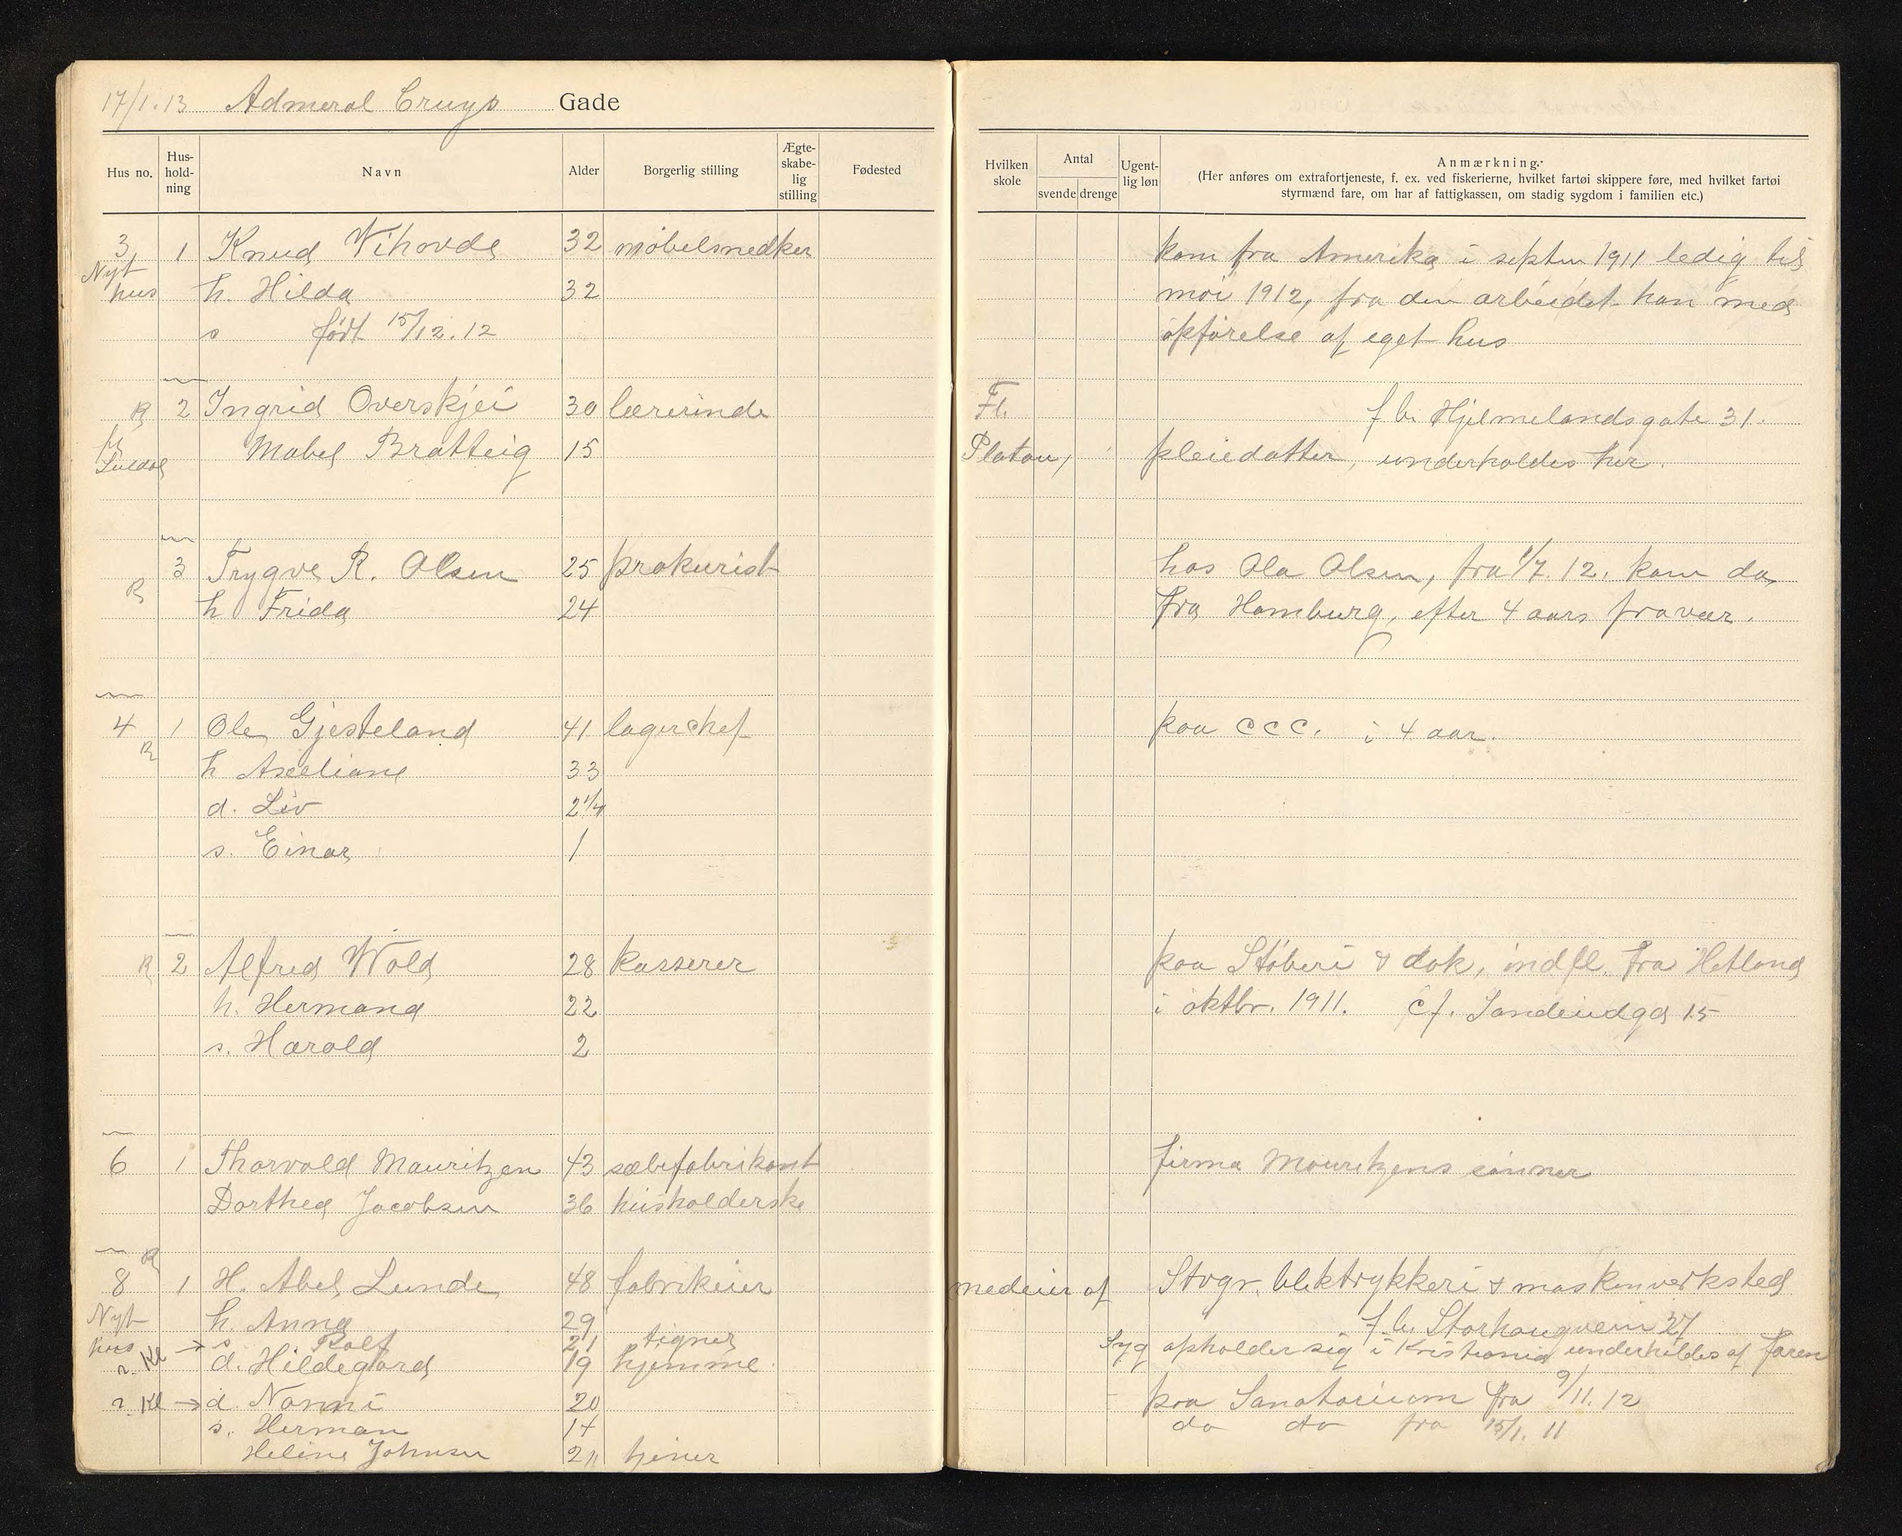 17/1.13 Admeral Cruys Gade
Hus no. Hus-hold-ning Navn Alder Borgerlig stilling Ægte-skabe-lig stilling Fødested Hvilken skole Antal svende drenge Ugent-lig løn Anmærkning.
(Her anføres om extrafortjeneste, f. ex. ved fiskerierne, hvilket fartøi skippere føre, med hvilket fartøi
styrmænd fare, om har af fattigkassen, om stadig sygdom i familien etc.)
3 1 Knud Vihovde 32 møbelsnedker kom fra Amerika i septbr 1911 ledig til
Nyt hus h. Hilda 32 mai 1912, fra den arbeidet han med
s født 15/12.12 opførelse af eget hus
R 2 Ingrid Overskjei 30 lærerinde Fl. f. br. Hjelmelandsgate 31.
Mabel Bratteig 15 Platou, pleiedatter, underholdes her.
R 3 Trygve R. Olsen 25 prokurist hos Ola Olsen, fra 1/7.12. kom da
h Frida 24 fra Hamburg, efter 4 aars fravær.
4 1 Ole Gjesteland 41 lagerchef paa C C C. i 4 aar.
R h Axeliane 33
d. Liv 2 1/4
s. Einar 1
R 2 Alfred Wold 28 kasserer paa Støberi & dok, indfl. fra Hetland
h. Hermana 22 i oktbr. 1911. cf. Sandeidgd 15
s. Harald 2
6 1 Thorvald Mauritzen 43 sæbefabrikant firma Mauritzens sønner
Dorthea Jacobsen 36 husholderske
R
8 1 H. Abel Lunde 48 fabrikeier medeier af Stvgr. bliktrykkeri & maskinverksted
Nyt hus h. Anna 29 f. br. Storhaugveien 27
→ s Rolf 21 tegner Syg opholder sig i Kristiania underholdes af faren
r. Kl d. Hildegard 19 hjemme.
r. Kl → d. Nanni 20 paa Sanatorium fra 9/11.12
s. Herman 14 do do fra 15/1.11
Heline Johnsen 21 tjener